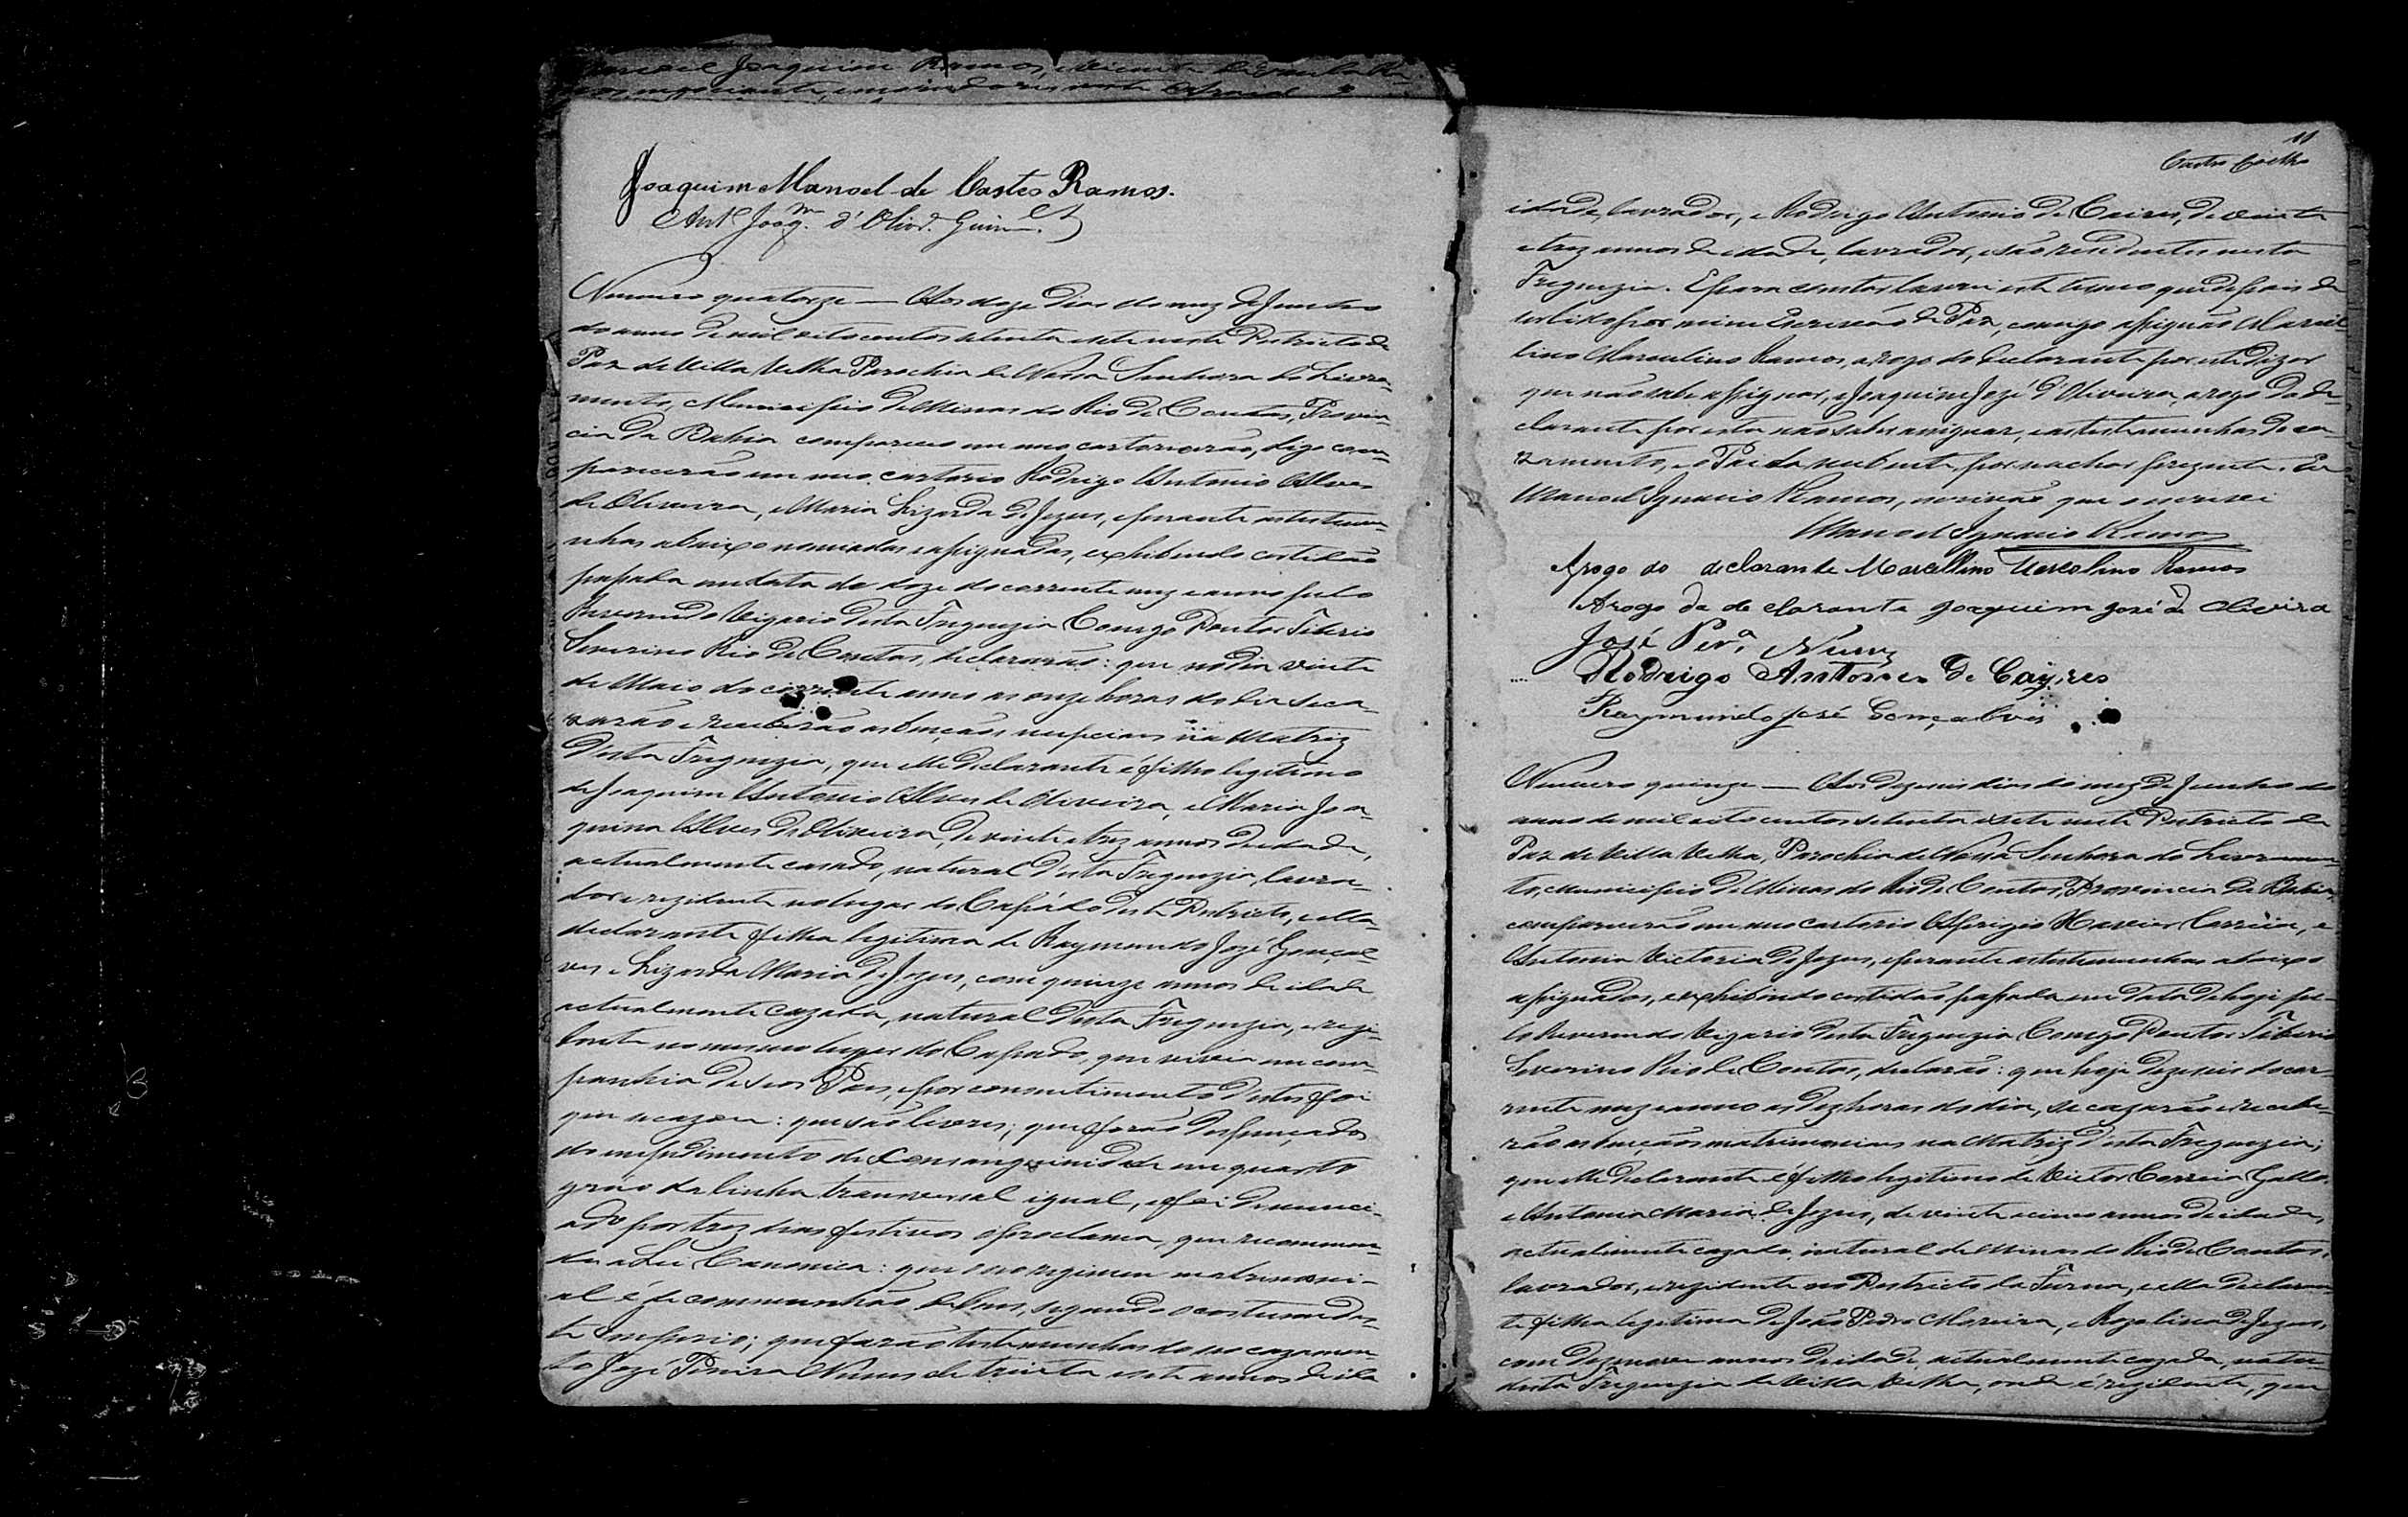 Manoel Joaquim Ramos,
Joaquim Manoel de Castro Ramos.
Antº Joaqm. d'Olivrª. Guim.es
Numero quatorze — Aos doze dias do mez de Junho
do anno de mil oito centos setenta e sete neste Districto de
Paz de Villa Velha Parochia de Nossa Senhora do Livra-
mento, Municipio de Minas do Rio de Contas, Provin-
cia da Bahia compareceo em meo cartorio erão, digo com-
parecerão em meo cartorio Rodrigo Antonio Alves
de Oliveira, e Maria Lizarda de Jezus, e perante as testemu-
nhas abaixo nomiadas e assignadas, exhibindo certidão
passada em data de doze do corrente mez e anno pelo
Reverendo Vigario desta Freguezia Conego Doutor Tiberio
Severino Rio de Contas, declararão: que no dia vinte
de Maio do corrente anno as onze horas do dia se ca-
zarão e receberão as bençãos nupciaes na Matriz
desta Freguezia, que elle declarante é filho legitimo
de Joaquim Antonio Alves de Oliveira, e Maria Joa-
quina Alves de Oliveira, de vinte e trez annos de idade,
actualmente casado, natural desta Freguezia, lavra-
dor e rezidente no lugar do Capado deste Districto, e ella
declarante filha legitima de Raymundo Jozé Gonçal-
ves e Lizarda Maria de Jezus, com quinze annos de idade
actualmente cazada, natural desta Freguezia, e rezi-
dente no mesmo lugar do Capado, que vivia em com-
panhia de seos Pais, e por consentimento destes foi
que se cazou: que são livres; que forão dispensados
do impedimento de Consanguinidade em quarto
gráo da linha transversal igual, e foi denunci-
ado por trez dias festivos o proclama, que recommen-
da a Lei Canonica: que o seo regimen matrimoni-
al é de communhão de bens, segundo o costume des-
te Imperio; que farão testemunhas do seo cazamen-
to Jozé Pereira Nunes de trinta e sete annos de ida
11
Castro Coelho
idade, lavrador, e Rodrigo Antonio de Caires, de vinte
e trez annos de idade, lavrador, e são residentes nesta
Freguezia. E para constar lavrei este termo que depois de
ser lido por mim Escrivão de Paz, comigo assignão Marcel-
lino Marcolino Ramos, a rogo do declarante por este dizer
que não sabe assignar, e Joaquim Jozé d'Oliveira, a rogo da de-
clarante por esta não saber assignar, e as testemunhas do ca-
zamento, e o Pai da nubente, por se achar prezente. Eu
Manoel Ignacio Ramos, escrivão que o escrevi
Manoel Ignacio Ramos
Arogo do declarante Marcellino Marcolino Ramos
Arogo da declarante Joaquim José de Oliveira
José Perª. Nunes
Rodrigo Antonio de Cayres
Raymundo José Gonçalves
Numero quinze — Aos dezeseis dias do mez de Junho do
anno de mil oito centos setenta e sete neste Districto de
Paz de Villa Velha, Parochia de Nossa Senhora do Livramen-
to, Municipio de Minas do Rio de Contas, Provincia da Bahia,
comparecerão em meo cartorio Aprigio Xavier Correia, e
Antonia Victoria de Jezus, e perante as testemunhas abaixo
assignados, exhibindo certidão passada em data de hoje pe-
lo Reverendo Vigario desta Freguezia Conego Doutor Tiberio
Severino Rio de Contas, declarão: que hoje dezeseis do cor-
rente mez e anno as dez horas do dia, se cazarão e recebe-
rão as bençãos matrimoniaes na Matriz desta Freguezia;
que elle declarante é filho legitimo de Victor Correia Gallo,
e Antonia Maria de Jezus, de vinte e cinco annos de idade,
actualmente cazado, natural de Minas do Rio de Contas,
lavrador, e rezidente no Districto da Furna, e ella declaran-
te filha legitima de João Pedro Moreira, e Rozalina de Jezus,
com dezenove annos de idade, actualmente cazada, natural
desta Freguezia de Villa Velha, onde é rezidente, que